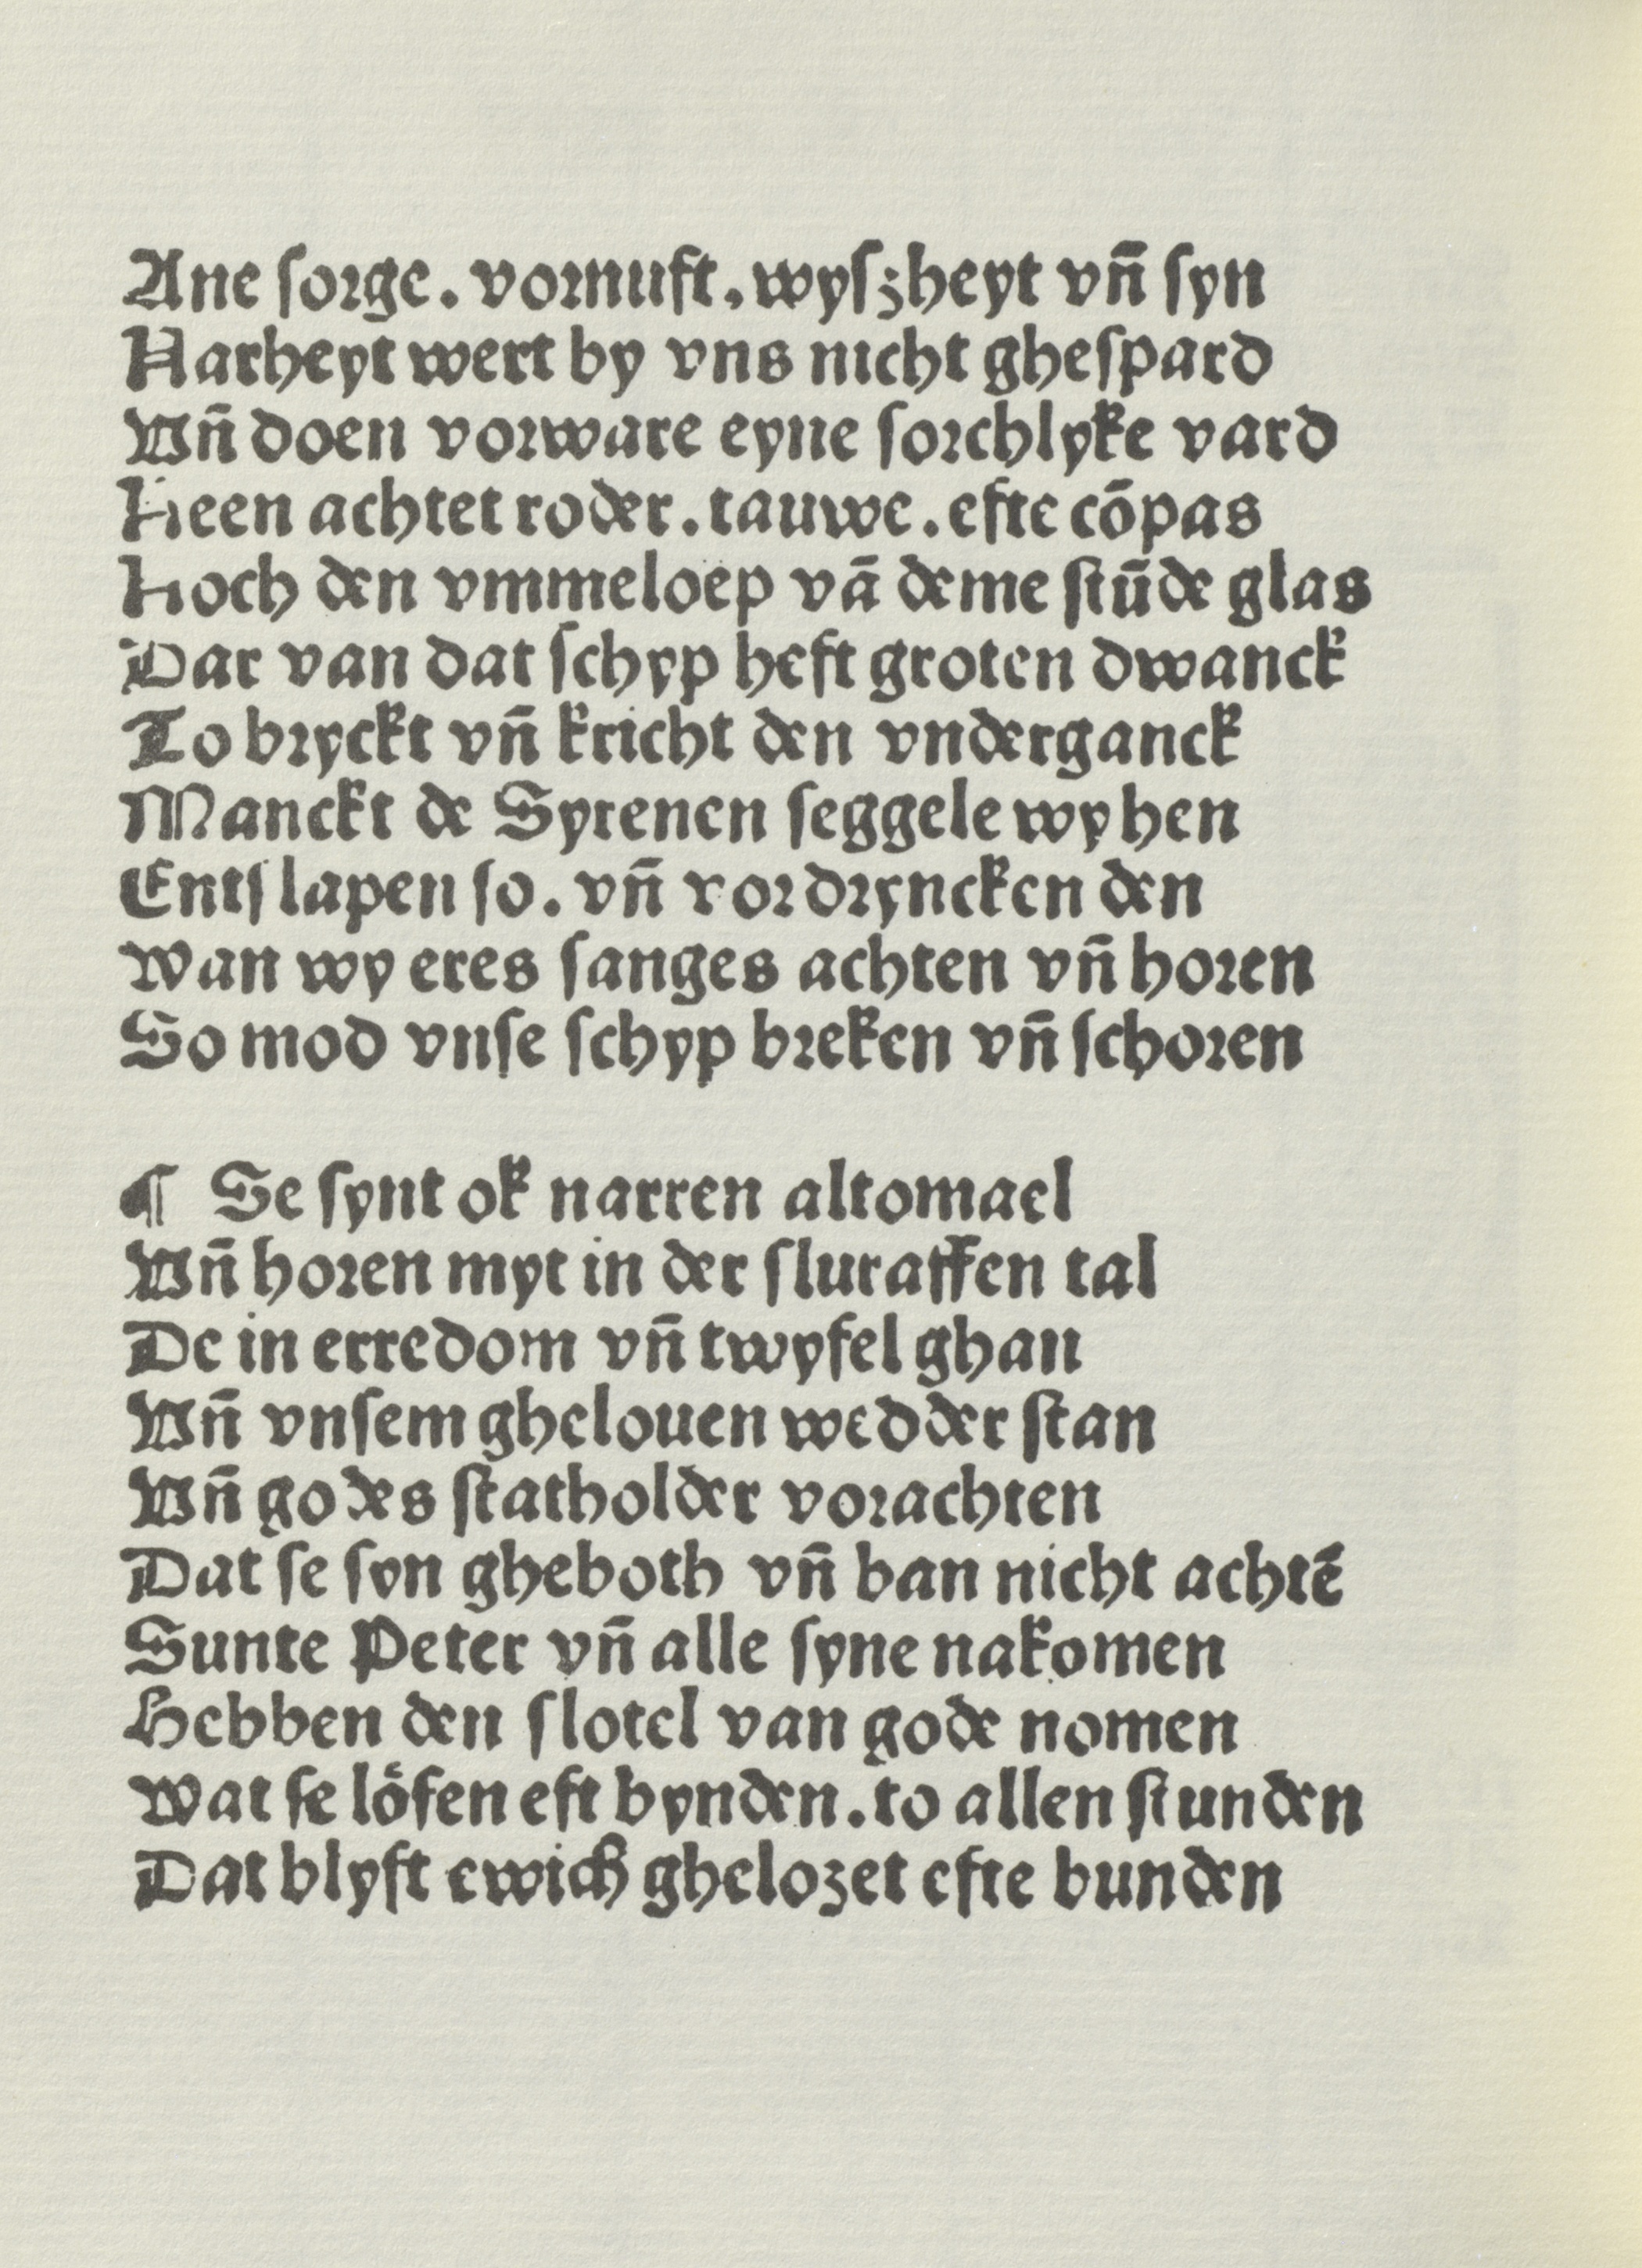 Ane ſorge. vornuft. wyſzheyt vn̄ ſyn
Narheyt wert by vns nicht gheſpard
Vn̄ doen vorware eyne ſorchlyke vard
Neen achtet roder. tauwe. efte cōpas
Noch den vmmeloep vā deme ſtūde glas
Dar van dat ſchyp heft groten dwanck
To bryckt vn̄ kricht den vnderganck
Manckt de Syrenen ſeggele wy hen
Entſlapen ſo. vn̄ vordryncken den
Wan wy eres ſanges achten vn̄ horen
So mod vnſe ſchyp breken vn̄ ſchoren
¶ Se ſynt ok narren altomael
Vn̄ horen myt in der ſluraffen tal
De in erredom vn̄ twyfel ghan
Vn̄ vnſem ghelouen wedder ſtan
Vn̄ godes ſtatholder vorachten
Dat ſe ſyn gheboth vn̄ ban nicht achtē
Sunte Peter vn̄ alle ſyne nakomen
Hebben den ſlotel van gode nomen
Wat ſe loͤſen eft bynden. to allen ſtunden
Dat blyft ewich ghelozet efte bunden